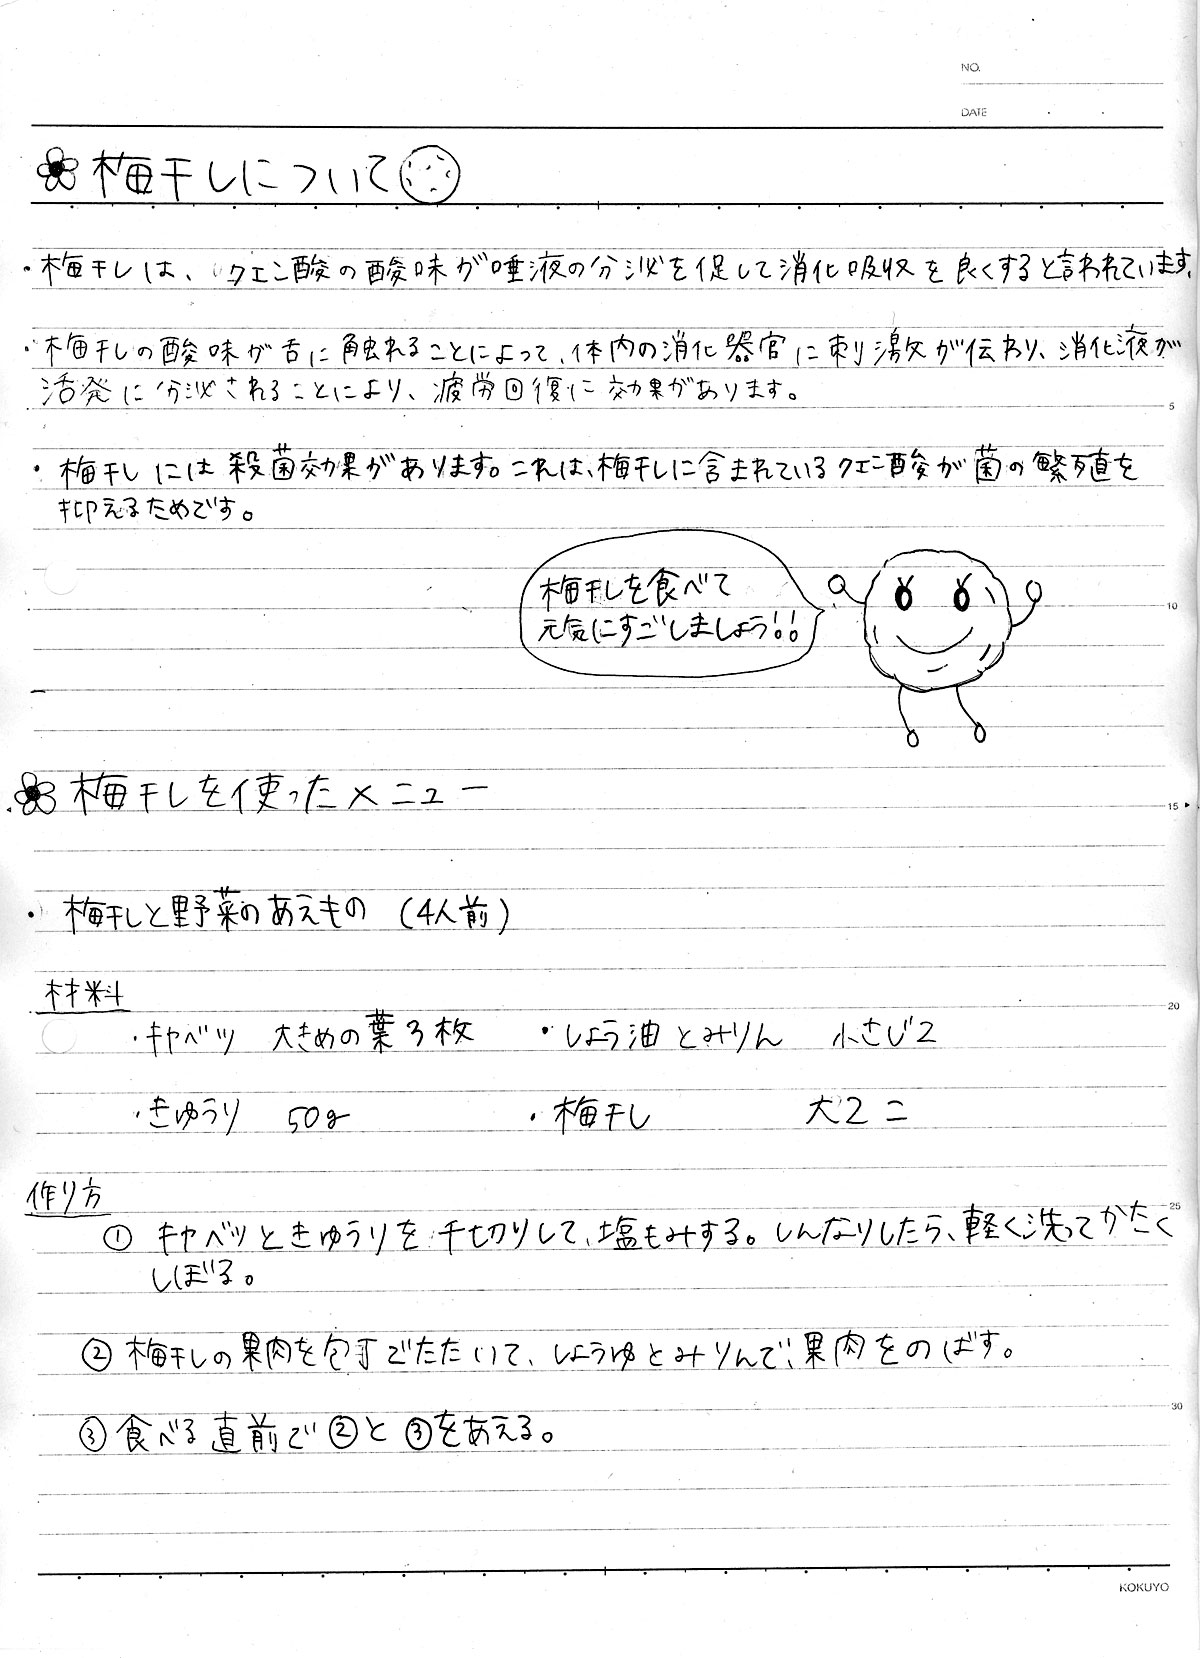 NO.
DATE
梅干しについて
・梅干しは、クエン酸の酸味が唾液の分泌を促して消化吸収を良くすると言われています。
・梅干しの酸味が舌に触れることによって、体内の消化器官に刺激が伝わり、消化液が
活発に分泌されることにより、疲労回復に効果があります。
・梅干しには殺菌効果があります。これは、梅干しに含まれているクエン酸が菌の繁殖を
抑えるためです。
5
梅干しを食べて
元気にすごしましょう!!
10
梅干しを使ったメニュー
15
・梅干しと野菜のあえもの (4人前)
材料
20
・キャベツ 大きめの葉3枚 ・しょう油とみりん 小さじ2
・きゅうり 50g ・梅干し 大2コ
作り方
25
① キャベツときゅうりを千切りして、塩もみする。しんなりしたら、軽く洗ってかたく
しぼる。
②梅干しの果肉を包丁でたたいて、しょうゆとみりんで、果肉をのばす。
30
③食べる直前で②と③をあえる。
KOKUYO